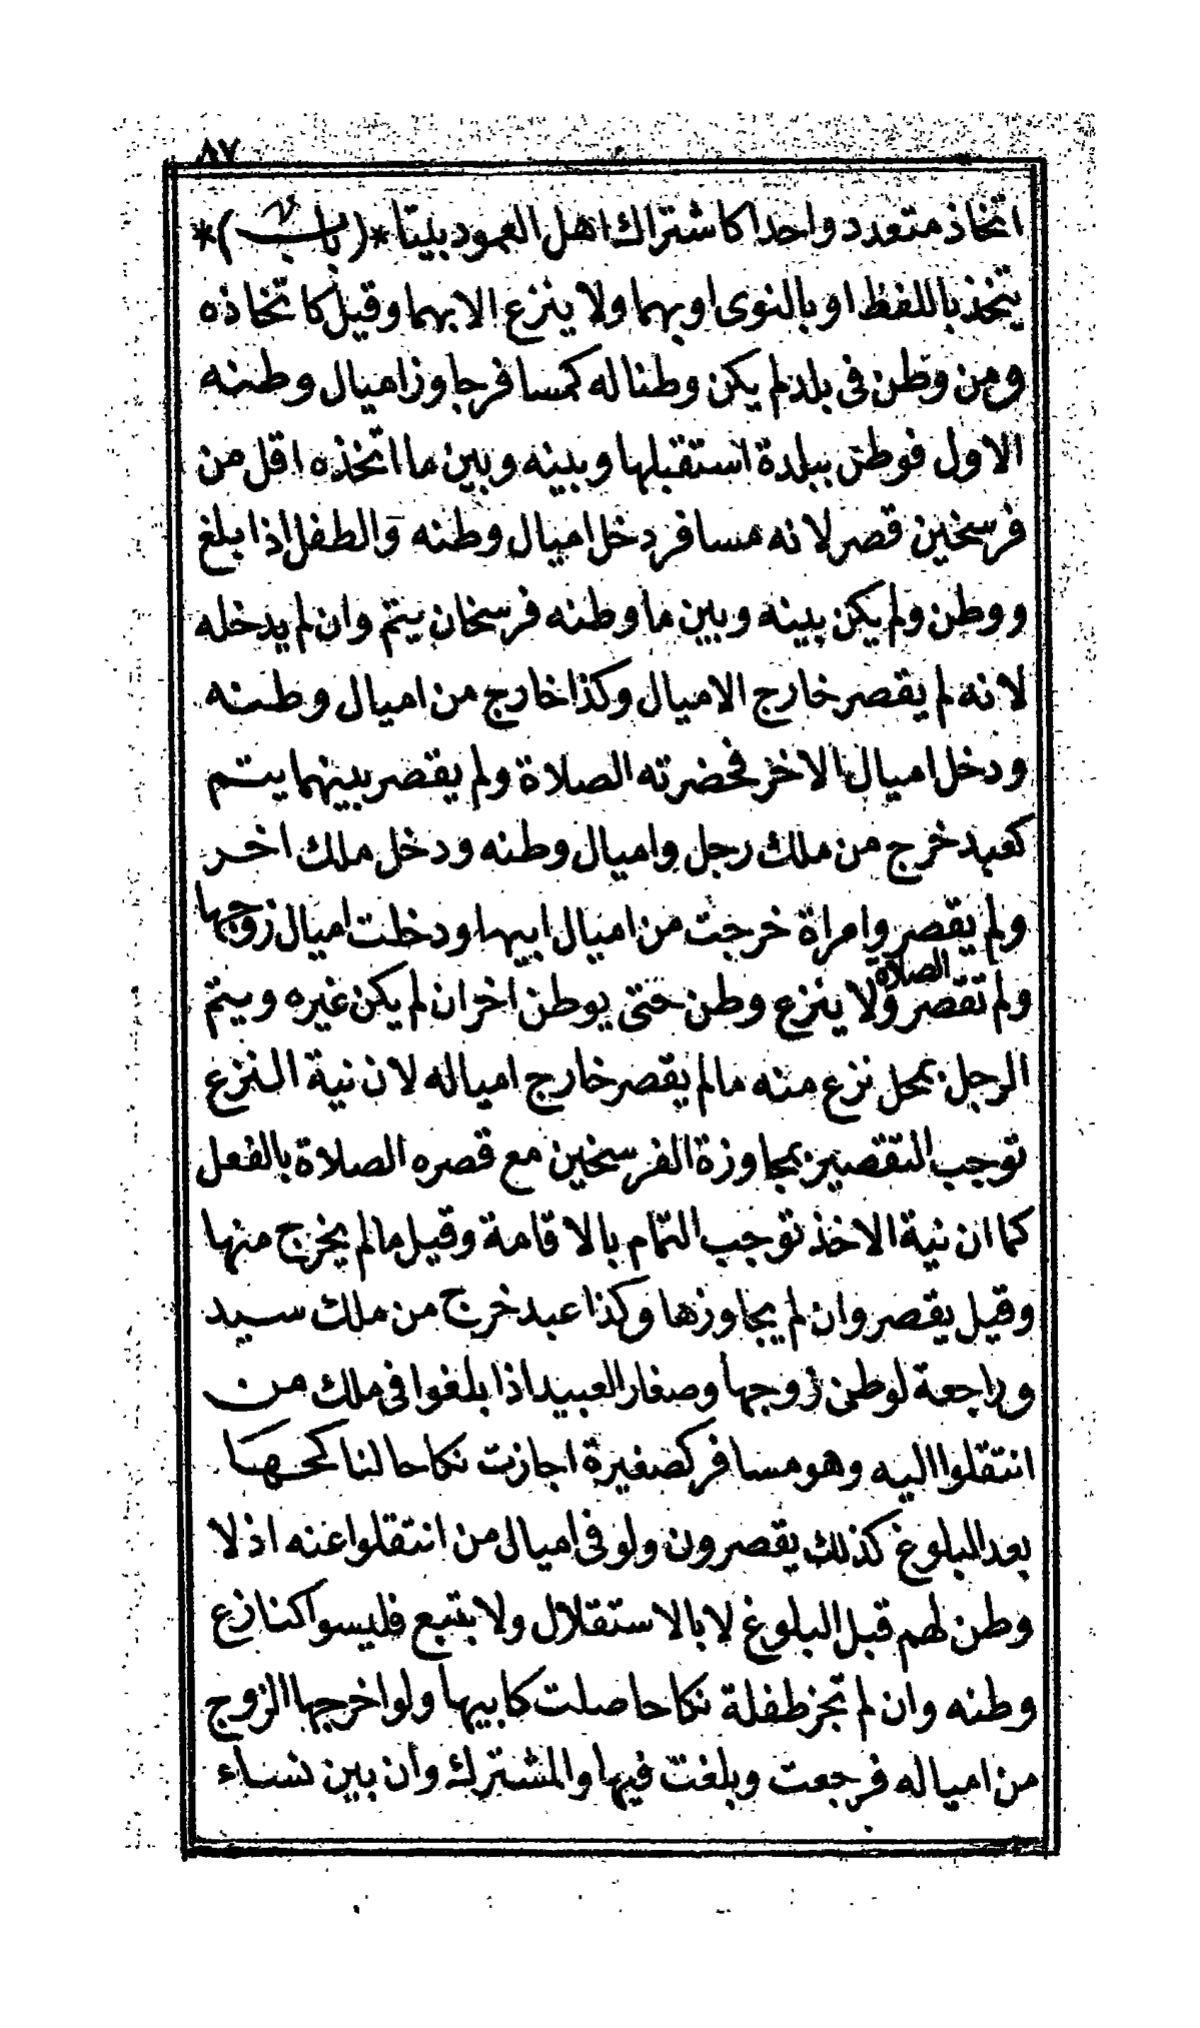 ٨٧
اتخاذ متعدد واحدا كاشتراك اهل العمود بيتا *( باب )*
يتخذ باللفظ او بالنوى او بهما ولا ينزع الا بهما وقيل كاتخاذه
ومن وطن فى بلد لم يكن وطنا له كمسافر جاوز اميال وطنه
الاول فوطن ببلدة استقبلها وبينه وبين ما اتخذه اقل من
فرسخين قصر لانه مسافر دخل اميال وطنه والطفل اذا بلغ
ووطن ولم يكن بينه وبين ما وطنه فرسخان يتم وان لم يدخله
لانه لم يقصر خارج الاميال وكذا خارج من اميال وطنه
ودخل اميال الاخر فحضرته الصلاة ولم يقصر بينهما يتم
كعبد خرج من ملك رجل واميال وطنه ودخل ملك اخر
ولم يقصر وامراة خرجت من اميال ابيها ودخلت اميال زوجها
ولم تقصر الصلاة ولا ينزع وطن حتى يوطن اخر ان لم يكن غيره ويتم
الرجل بمحل نزع منه مالم يقصر خارج امياله لان نية النزع
توجب التقصير بمجاوزة الفرسخين مع قصره الصلاة بالفعل
كما ان نية الاخذ توجب التمام بالاقامة وقيل مالم يخرج منها
وقيل يقصر وان لم يجاوزها وكذا عبد خرج من ملك سيد
وراجعة لوطن زوجها وصغار العبيد اذا بلغوا فى ملك من
انتقلوا اليه وهو مسافر كصغيرة اجازت نكاحا لناكحها
بعد البلوغ كذلك يقصرون ولو فى اميال من انتقلوا عنه اذ لا
وطن لهم قبل البلوغ لا بالاستقلال ولا بتبع فليسوا كنازع
وطنه وان لم تجز طفلة نكاحا صلت كابيها ولو اخرجها الزوج
من امياله فرجعت وبلغت فيها والمشترك وان بين نساء